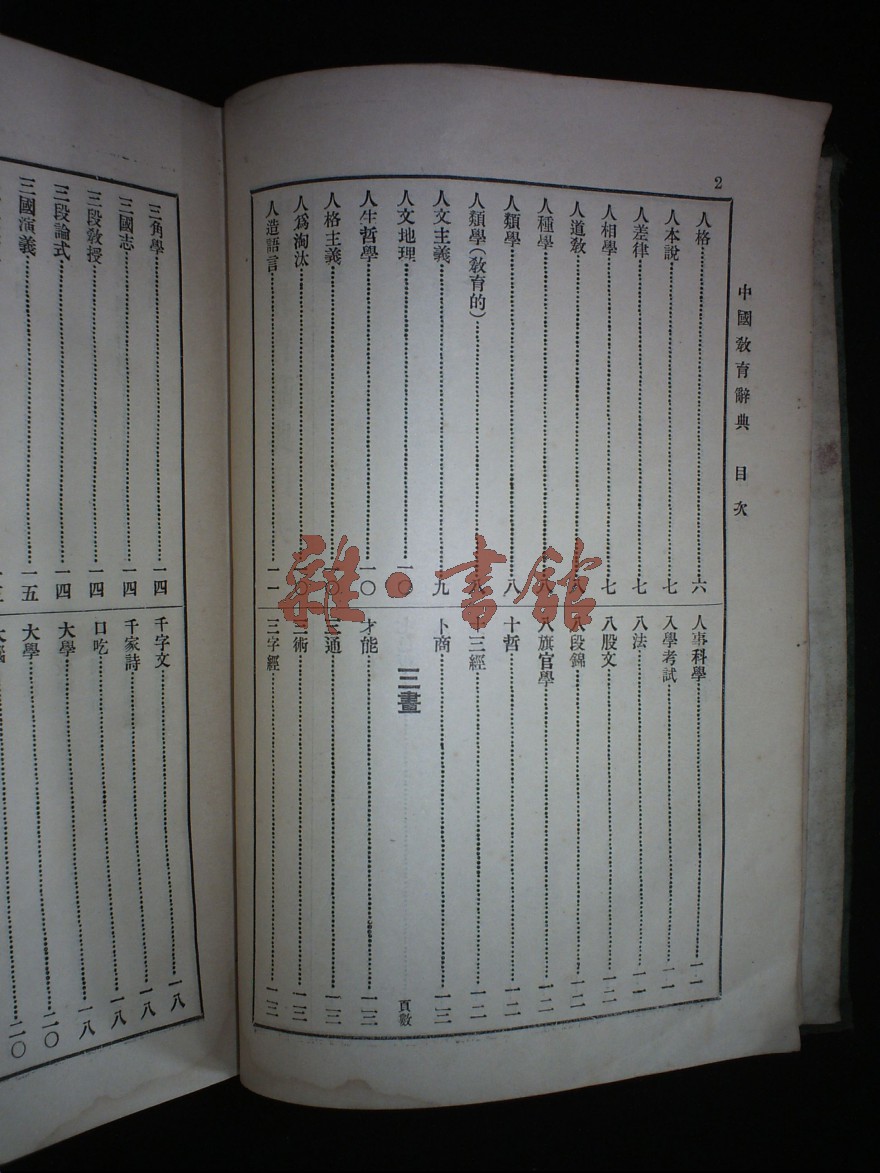 2
中國教育辭典 目次
人格 六
人本說 七
人差律 七
人相學 七
人道教 八
人種學 八
人類學 八
人類學(教育的) 八
人文主義 九
人文地理 一〇
人生哲學 一〇
人格主義 一〇
人爲淘汰 一〇
人造語言 一一
人事科學 一一
入學考試 一一
八法 一一
八股文 一一
八段錦 一二
八旗官學 一二
十哲 一二
十三經 一二
卜商 一三
三畫 頁數
才能 一三
三通 一三
三術 一三
三字經 一三
三角學 一四
三國志 一四
三段教授 一四
三段論式 一四
三國演義 一五
千字文 一八
千家詩 一八
口吃 一八
大學 一八
大學 二〇
雜·書館